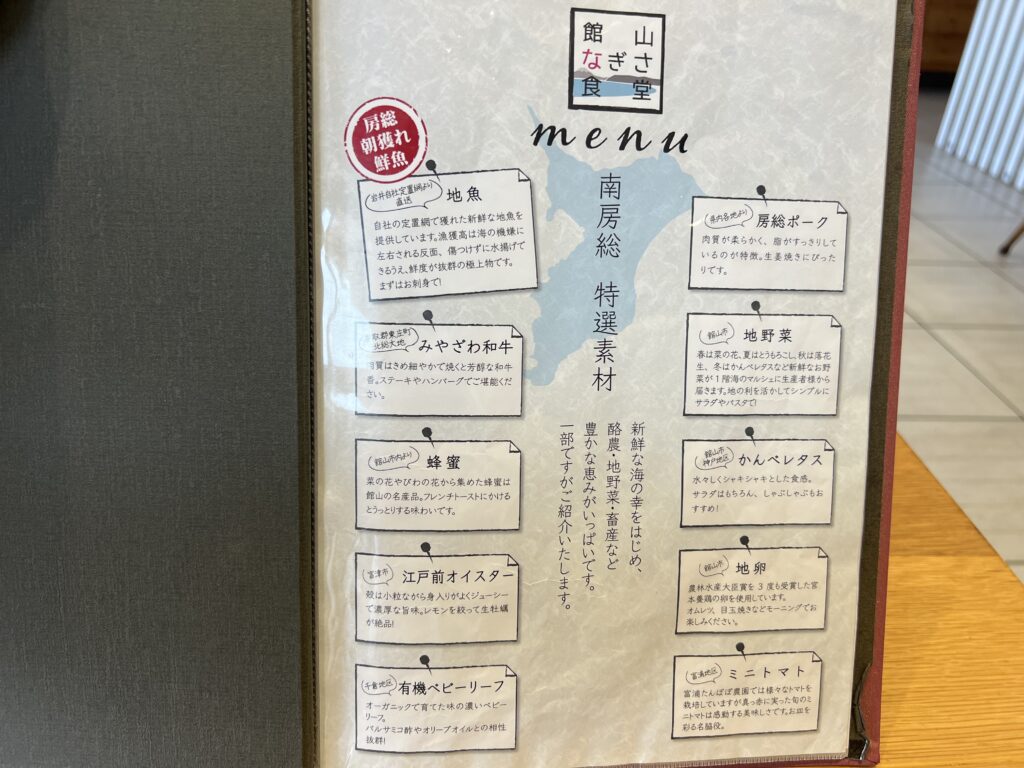 館山
なぎさ
食堂
menu
房総
朝獲れ
鮮魚
南房総 特選素材
新鮮な海の幸をはじめ、
酪農・地野菜・畜産など
豊かな恵みがいっぱいです。
一部ですがご紹介いたします。
岩井自社定置網より
直送
地魚
自社の定置網で獲れた新鮮な地魚を
提供しています。漁獲高は海の機嫌に
左右される反面、傷つけずに水揚げで
きるうえ、鮮度が抜群の極上物です。
まずはお刺身で!
取郡東庄町
北総大地
みやざわ和牛
肉質はきめ細やかで焼くと芳醇な和牛
香。ステーキやハンバーグでご堪能くだ
さい。
館山市内より
蜂蜜
菜の花やびわの花から集めた蜂蜜は
館山の名産品。フレンチトーストにかける
とうっとりする味わいです。
富津市
江戸前オイスター
殻は小粒ながら身入りがよくジューシー
で濃厚な旨味。レモンを絞って生牡蠣
が絶品!
千倉地区
有機ベビーリーフ
オーガニックで育てた味の濃いベビー
リーフ。
バルサミコ酢やオリーブオイルとの相性
抜群!
県内各地より
房総ポーク
肉質が柔らかく、脂がすっきりして
いるのが特徴。生姜焼きにぴった
りです。
館山市
地野菜
春は菜の花、夏はとうもろこし、秋は落花
生、冬はかんべレタスなど新鮮なお野
菜が1階海のマルシェに生産者様から
届きます。地の利を活かしてシンプルに
サラダやパスタで!
館山市
神戸地区
かんべレタス
水々しくシャキシャキとした食感。
サラダはもちろん、しゃぶしゃぶもお
すすめ!
館山市
地卵
農林水産大臣賞を3度も受賞した宮
本養鶏の卵を使用しています。
オムレツ、目玉焼きなどモーニングでお
楽しみください。
富浦地区
ミニトマト
富浦たんぽぽ農園では様々なトマトを
栽培していますが真っ赤に実った旬のミ
ニトマトは感動する美味しさです。お皿を
彩る名脇役。